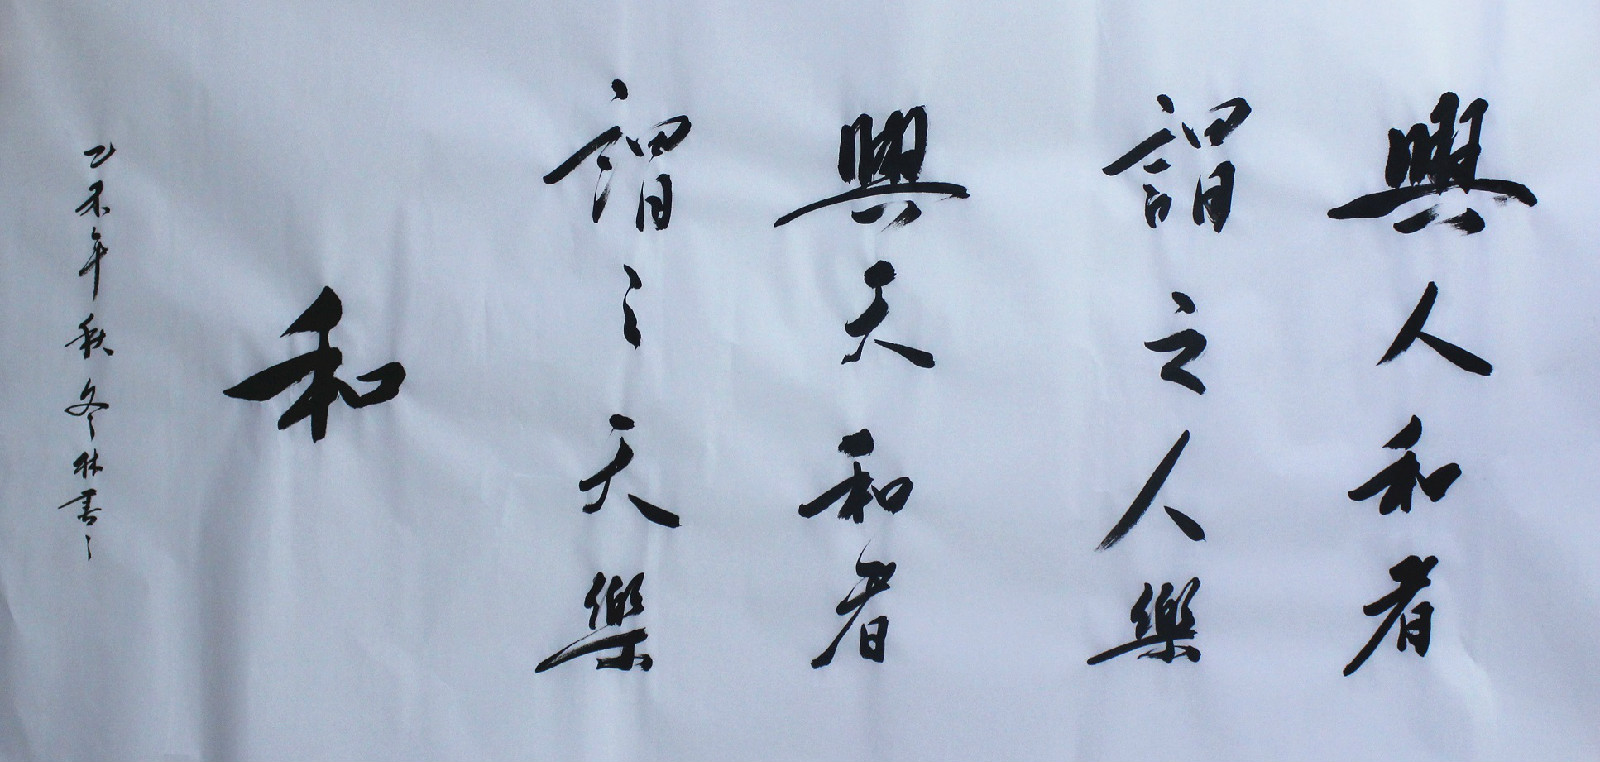 興人和者
謂之人樂
興天和者
謂之天樂
和
乙未年秋冬林書